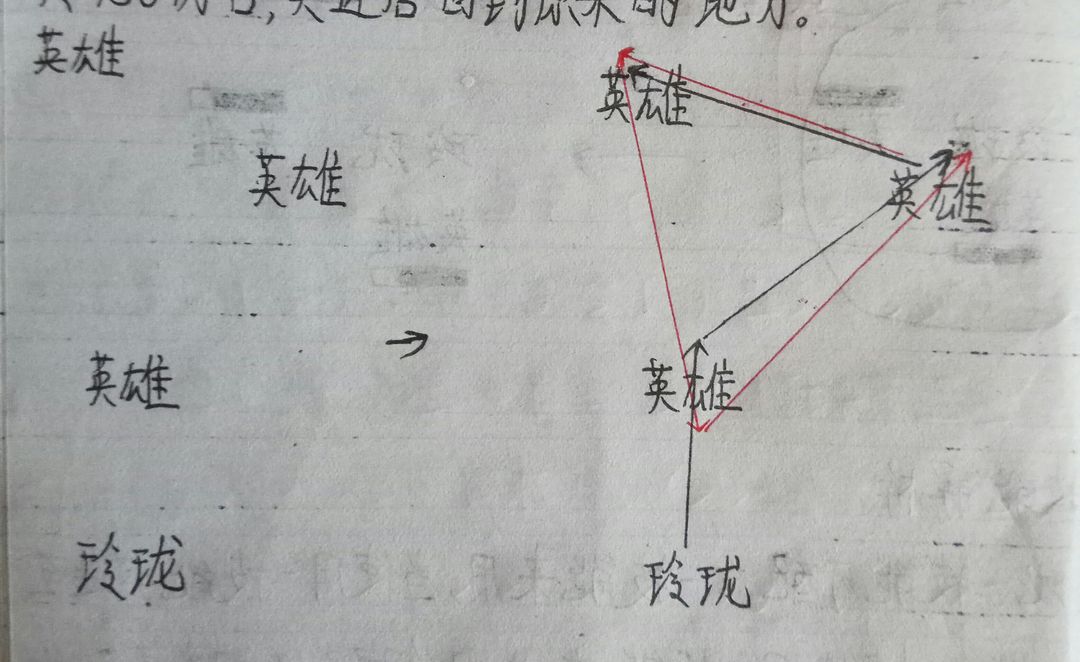 突进后回到原来的地方。
英雄
英雄
英雄
英雄
英雄
英雄
玲珑
玲珑